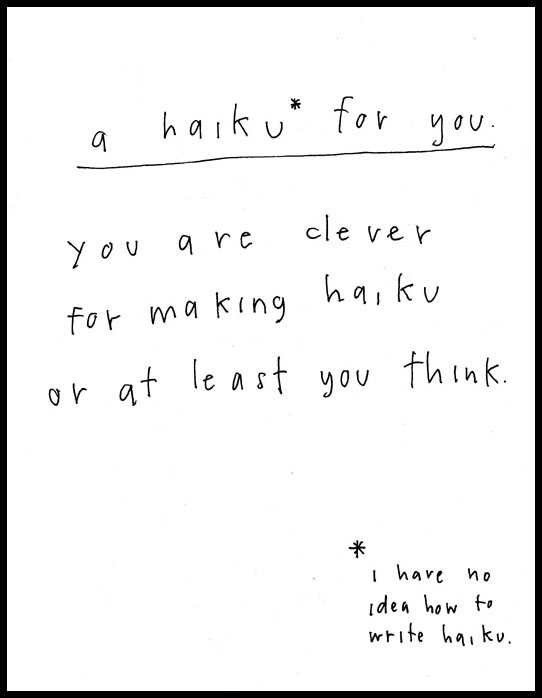 a haiku* for you.
you are clever
for making haiku
or at least you think.
*
i have no
idea how to
write haiku.